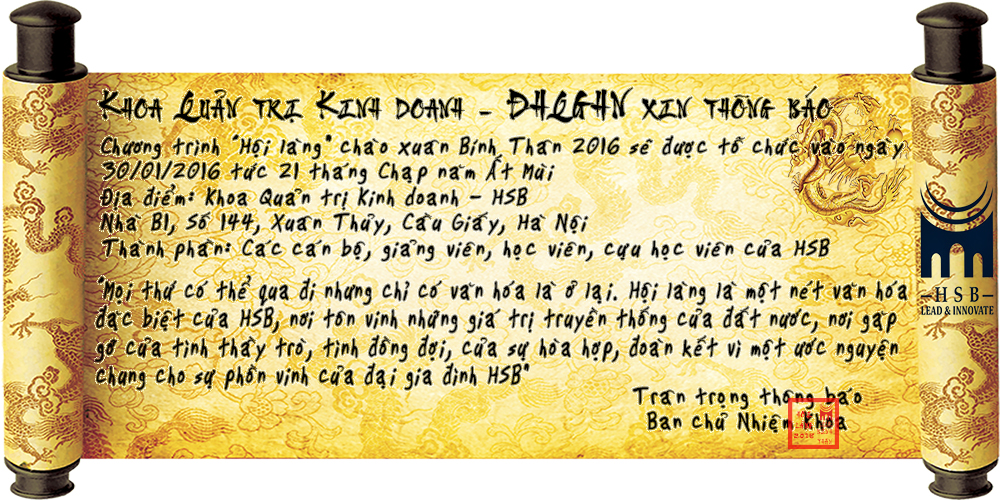 KHOA QUẢN TRỊ KINH DOANH - ĐHQGHN XIN THÔNG BÁO
Chương trình "Hội làng" chào xuân Bính Thân 2016 sẽ được tổ chức vào ngày
30/01/2016 tức 21 tháng Chạp năm Ất Mùi
Địa điểm: Khoa Quản trị Kinh doanh - HSB
Nhà B1, Số 144, Xuân Thủy, Cầu Giấy, Hà Nội
Thành phần: Các cán bộ, giảng viên, học viên, cựu học viên của HSB
"Mọi thứ có thể qua đi nhưng chỉ có văn hóa là ở lại. Hội làng là một nét văn hóa
đặc biệt của HSB, nơi tôn vinh những giá trị truyền thống của đất nước, nơi gặp
gỡ của tình thầy trò, tình đồng đội, của sự hòa hợp, đoàn kết vì một ước nguyện
chung cho sự phồn vinh của đại gia đình HSB"
Trân trọng thông báo
Ban chủ Nhiệm Khoa
HSB
LEAD & INNOVATE